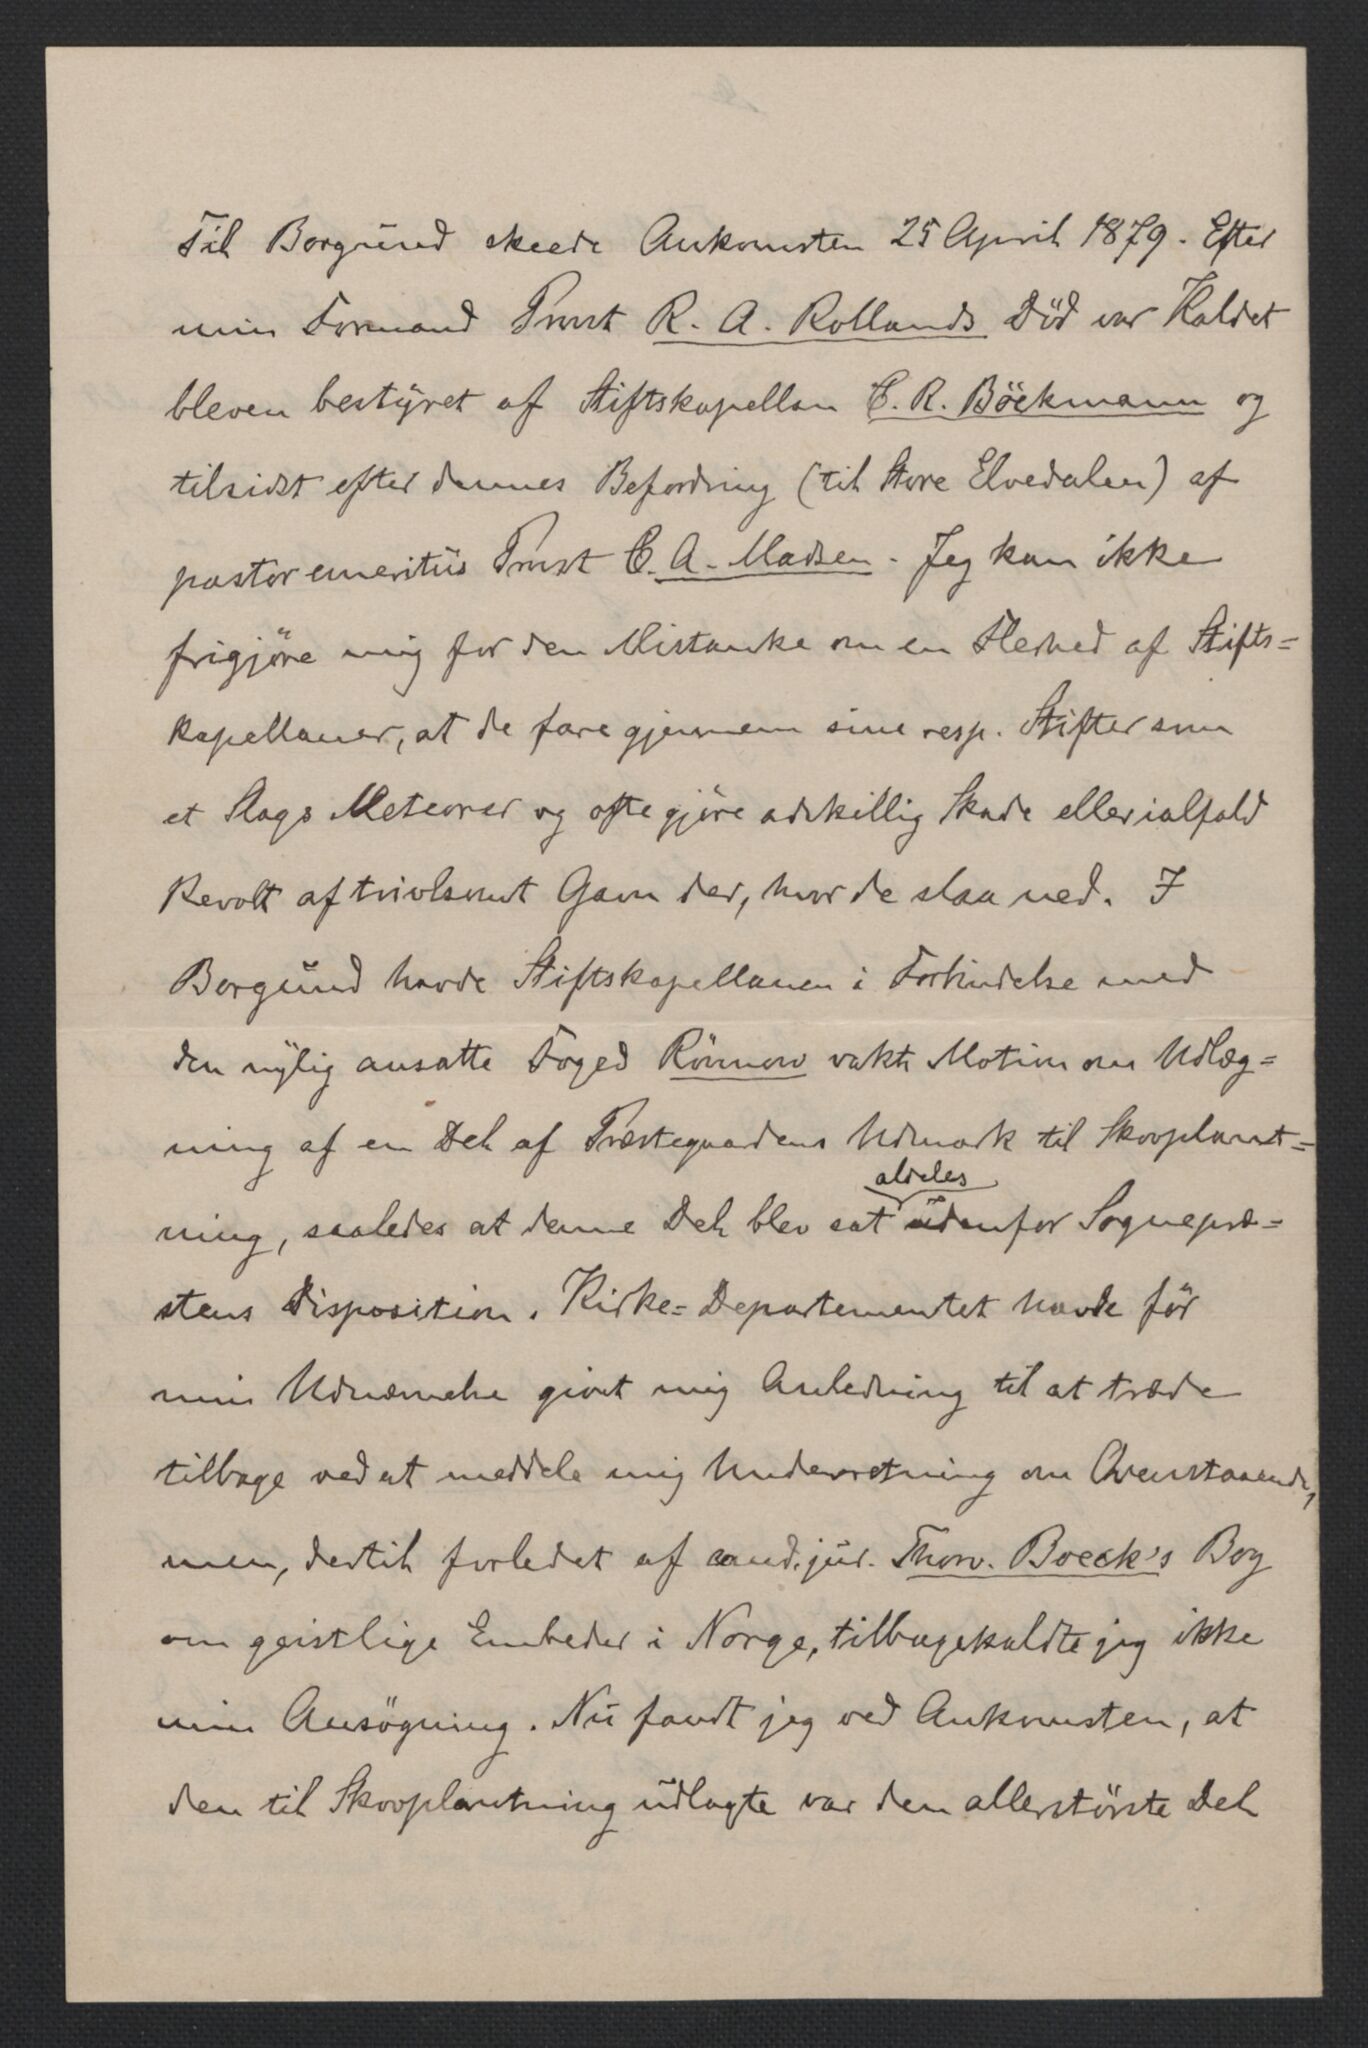 Til Borgund skede Ankomsten 25 April 1879. Efter
min Formand Provst R. A. Rollands Död var Kaldet
bleven bestyret af Stiftskapellan C. R. Böckmann og
tilsidst efter dennes Befordring (til Store Elvedalen) af
pastor emeritus Provst C. A. Madsen. Jeg kan ikke
frigjöre mig for den Mistanke om en Flerhed af Stifts=
kapellaner, at de fare gjennem sine resp. Stifter som
et Slags Meteorer og ofte gjöre adskillig Skade eller ialfald
Revolt af tvivlsomt Gavn der, hvor de slaa ned. I
Borgund havde Stiftskapellanen i Forbindelse med
den nylig ansatte Foged Rönnow vakt Motion om Udlæg=
ning af en Del af Præstegaardens Udmark til Skovplant=
aldeles
ning, saaledes at denne Del blev sat udenfor Sognepræ=
stens Disposition. Kirke=Departementet havde för
min Udnævnelse givet mig Anledning til at træde
tilbage ved at meddele mig Underretning om Ovenstaaende,
men, dertil forledet af cand. jur. Thorv. Boeck's Bog
om geistlige Embeder i Norge, tilbagekaldte jeg ikke
min Ansögning. Nu fandt jeg ved Ankomsten, at
den til Skovplantning udlagte var den allerstörste Del